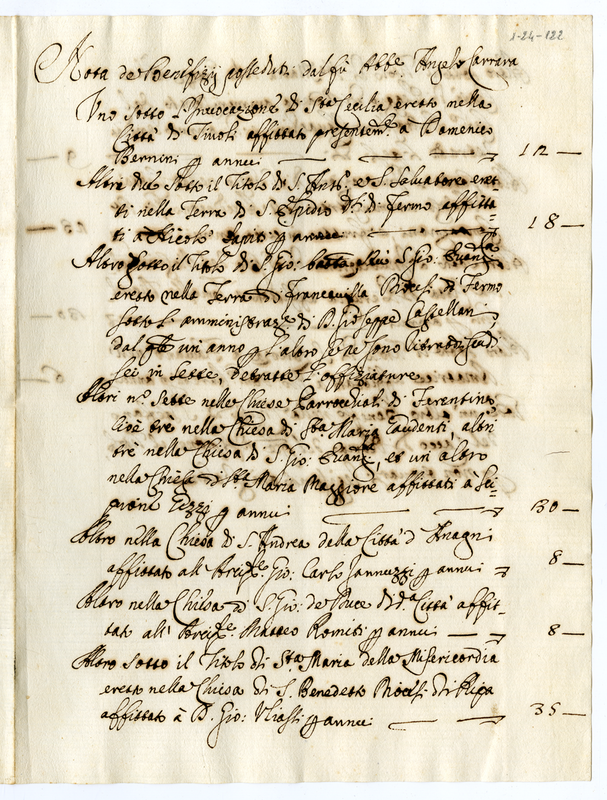 1-24-122
Nota de Benefizij posseduti dal fù Abb.e Angelo Carrara
Uno sotto l'Invocazione di S.ta Cecilia eretto nella
Città di Tivoli affittato presentem.te à Domenico
Bernini p annui 12 —
Altri due sotto il Titolo di S. Ant.o, e S. Salvatore eret
ti nella Terra di S. Elpidio di Fermo affitta-
ti à Nicolò p annui 18 —
Altro sotto il Titolo di S. Gio: S. Gio: Evang.ta
eretto nella Terra di Francavilla Diocesi di Fermo
sotto l'amministraz.e di D. Giuseppe Castellani,
dal un anno p l'altro se ne sono
sei in sette, detratte l'offiziature
Altri n.o sette nelle Chiese Parrocchiali di Ferentino
Cioè trè nella Chiesa di S.ta Maria Gaudenti, altri
trè nella Chiesa di S. Gio: Evang.ta, et un altro
nella Chiesa di S.ta Maria Maggiore affittati à Sci-
pione Tizzi p annui 30 —
Altro nella Chiesa di S. Andrea della Città d'Anagni
affittato all'Arcip.te Gio: Carlo Jannuzzi p annui 8 —
Altro nella Chiesa di S. Gio: de Duce di d.a Città affit-
tato all'Arcip.te Matteo Romiti p annui 8 —
Altro sotto il Titolo di S.ta Maria della Misericordia
eretto nella Chiesa di S. Benedetto Diocesi di Ripa
affittato à D. Gio: Vliassi p annui 35 —